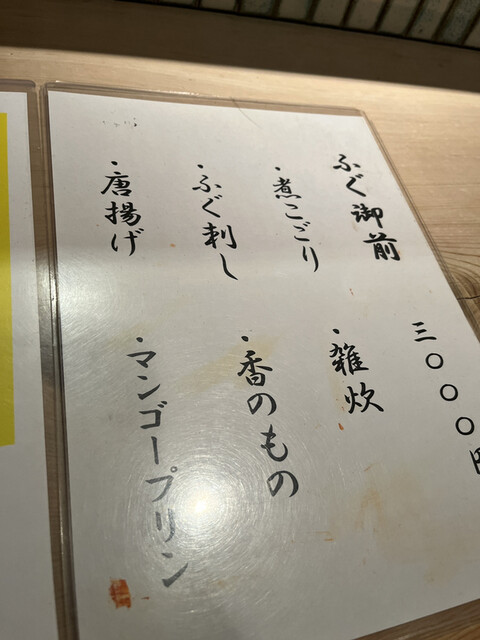 ふぐ御前
三〇〇〇円
・煮こごり
・ふぐ刺し
・唐揚げ
・雑炊
・香のもの
・マンゴープリン